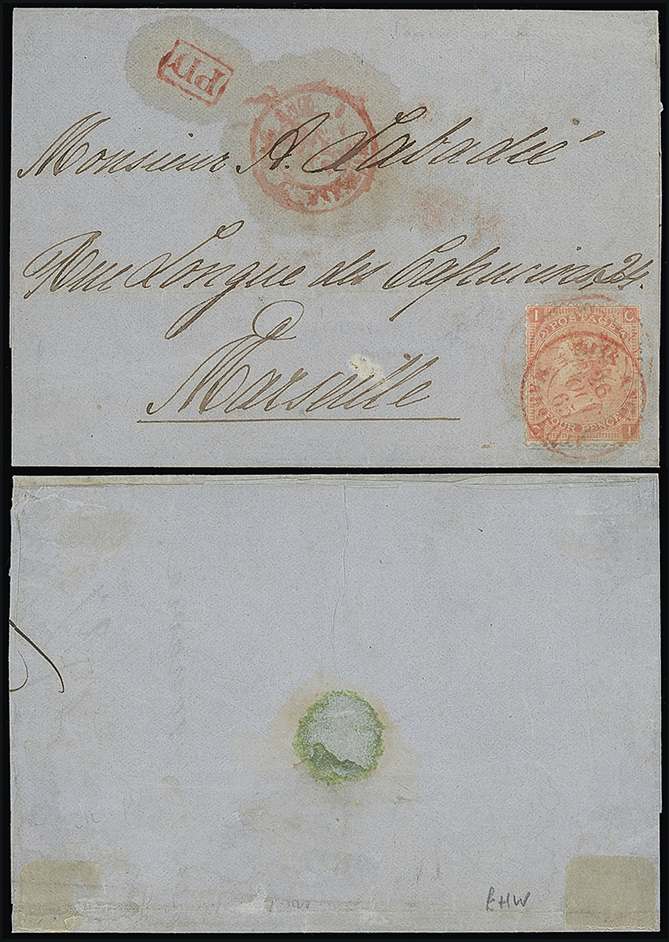 PD
Monsieur A. Labadié
Rue Longue des Capucins 24.
Marseille
I C
POSTAGE
FOUR PENCE
C I
EHW